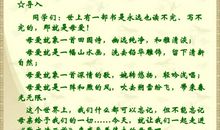 ☆导入
同学们：世上有一部书是永远也读不完、写不
完的，那就是母爱！
母爱就象一首田园诗，幽远纯净，和雅清淡；
母爱就象一幅山水画，洗去铅华雕饰，留下清新
自然；
母爱就象一首深情的歌，婉转悠扬，轻吟浅唱；
母爱就象一阵和煦的风，吹去朔雪纷飞，带来春
光无限。
这个世界上，我们什么都可以忘记，但不能忘记
母亲给予我们的一切……今天，就让我们一起走进